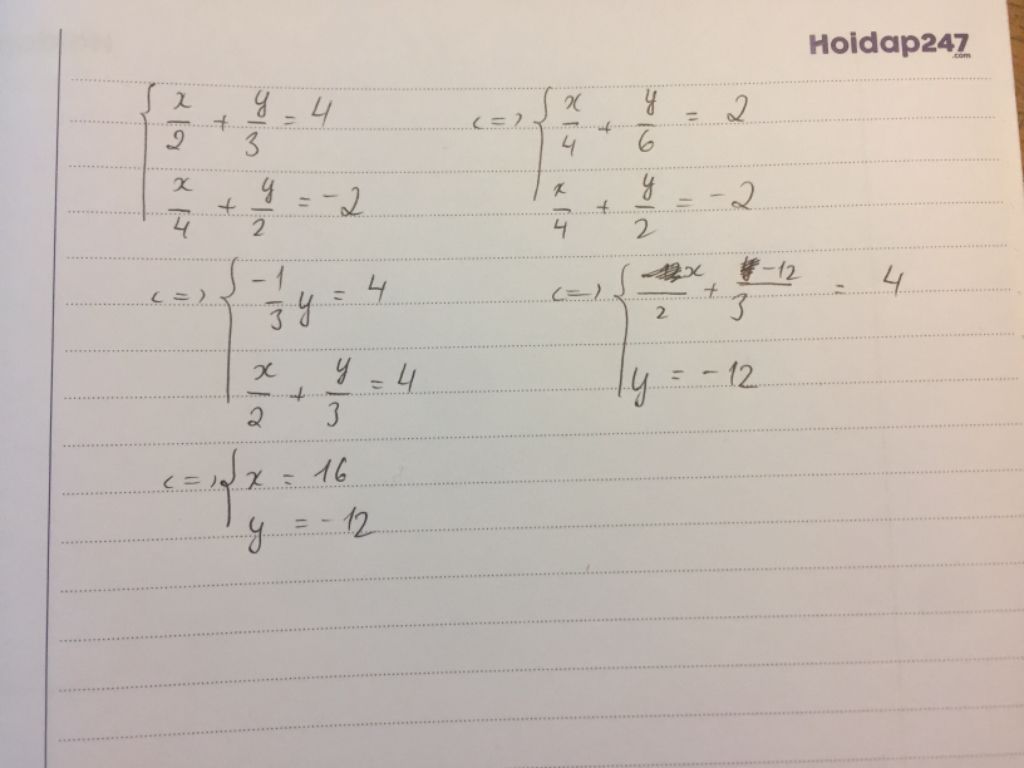 Hoidap247
.com
{ x/2 + y/3 = 4 <=> { x/4 + y/6 = 2
x/4 + y/2 = -2 x/4 + y/2 = -2
<=> { -1/3 y = 4 <=> { x/2 + -12/3 = 4
x/2 + y/3 = 4 y = -12
<=> { x = 16
y = -12